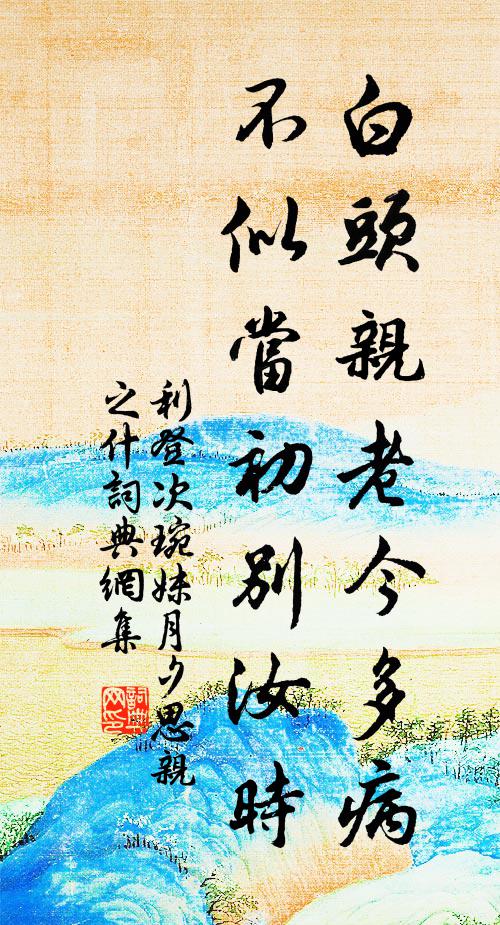 白頭親老今多病
不似當初別汝時
利登次琬妹月夕思親
之什詞典網集